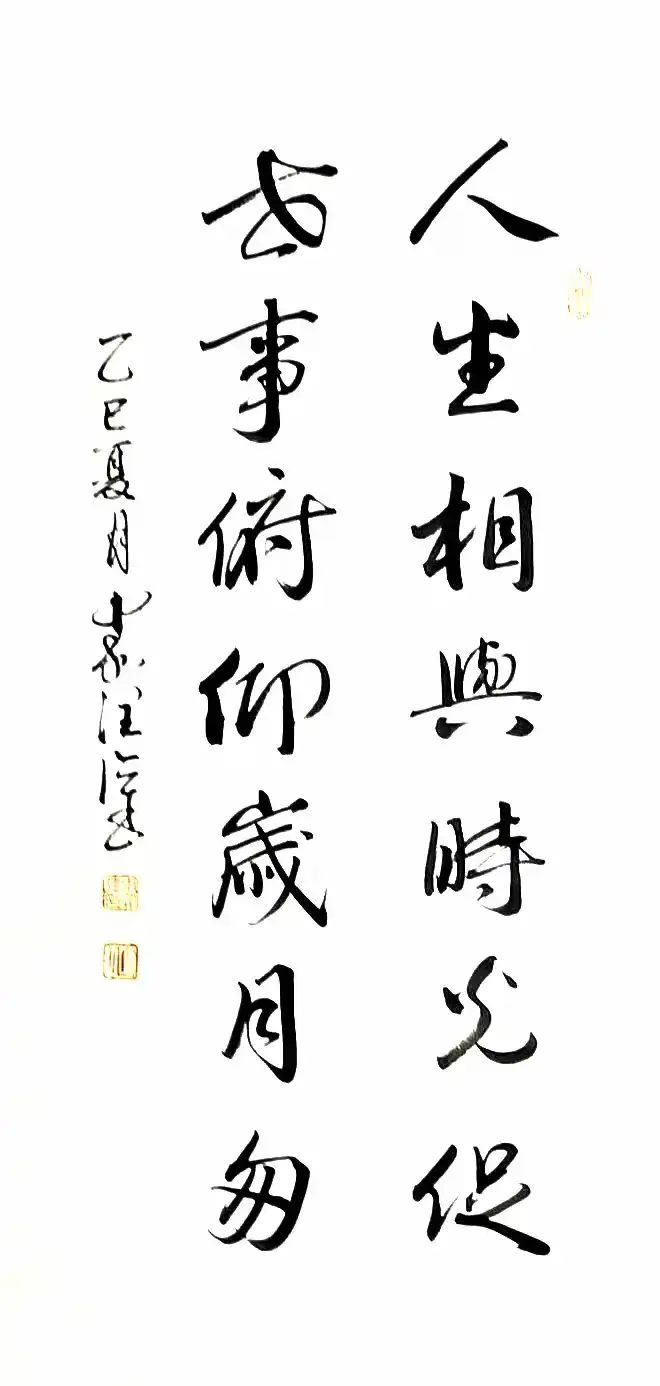 人生相與時光促
世事俯仰歲月匆
乙巳夏月 書